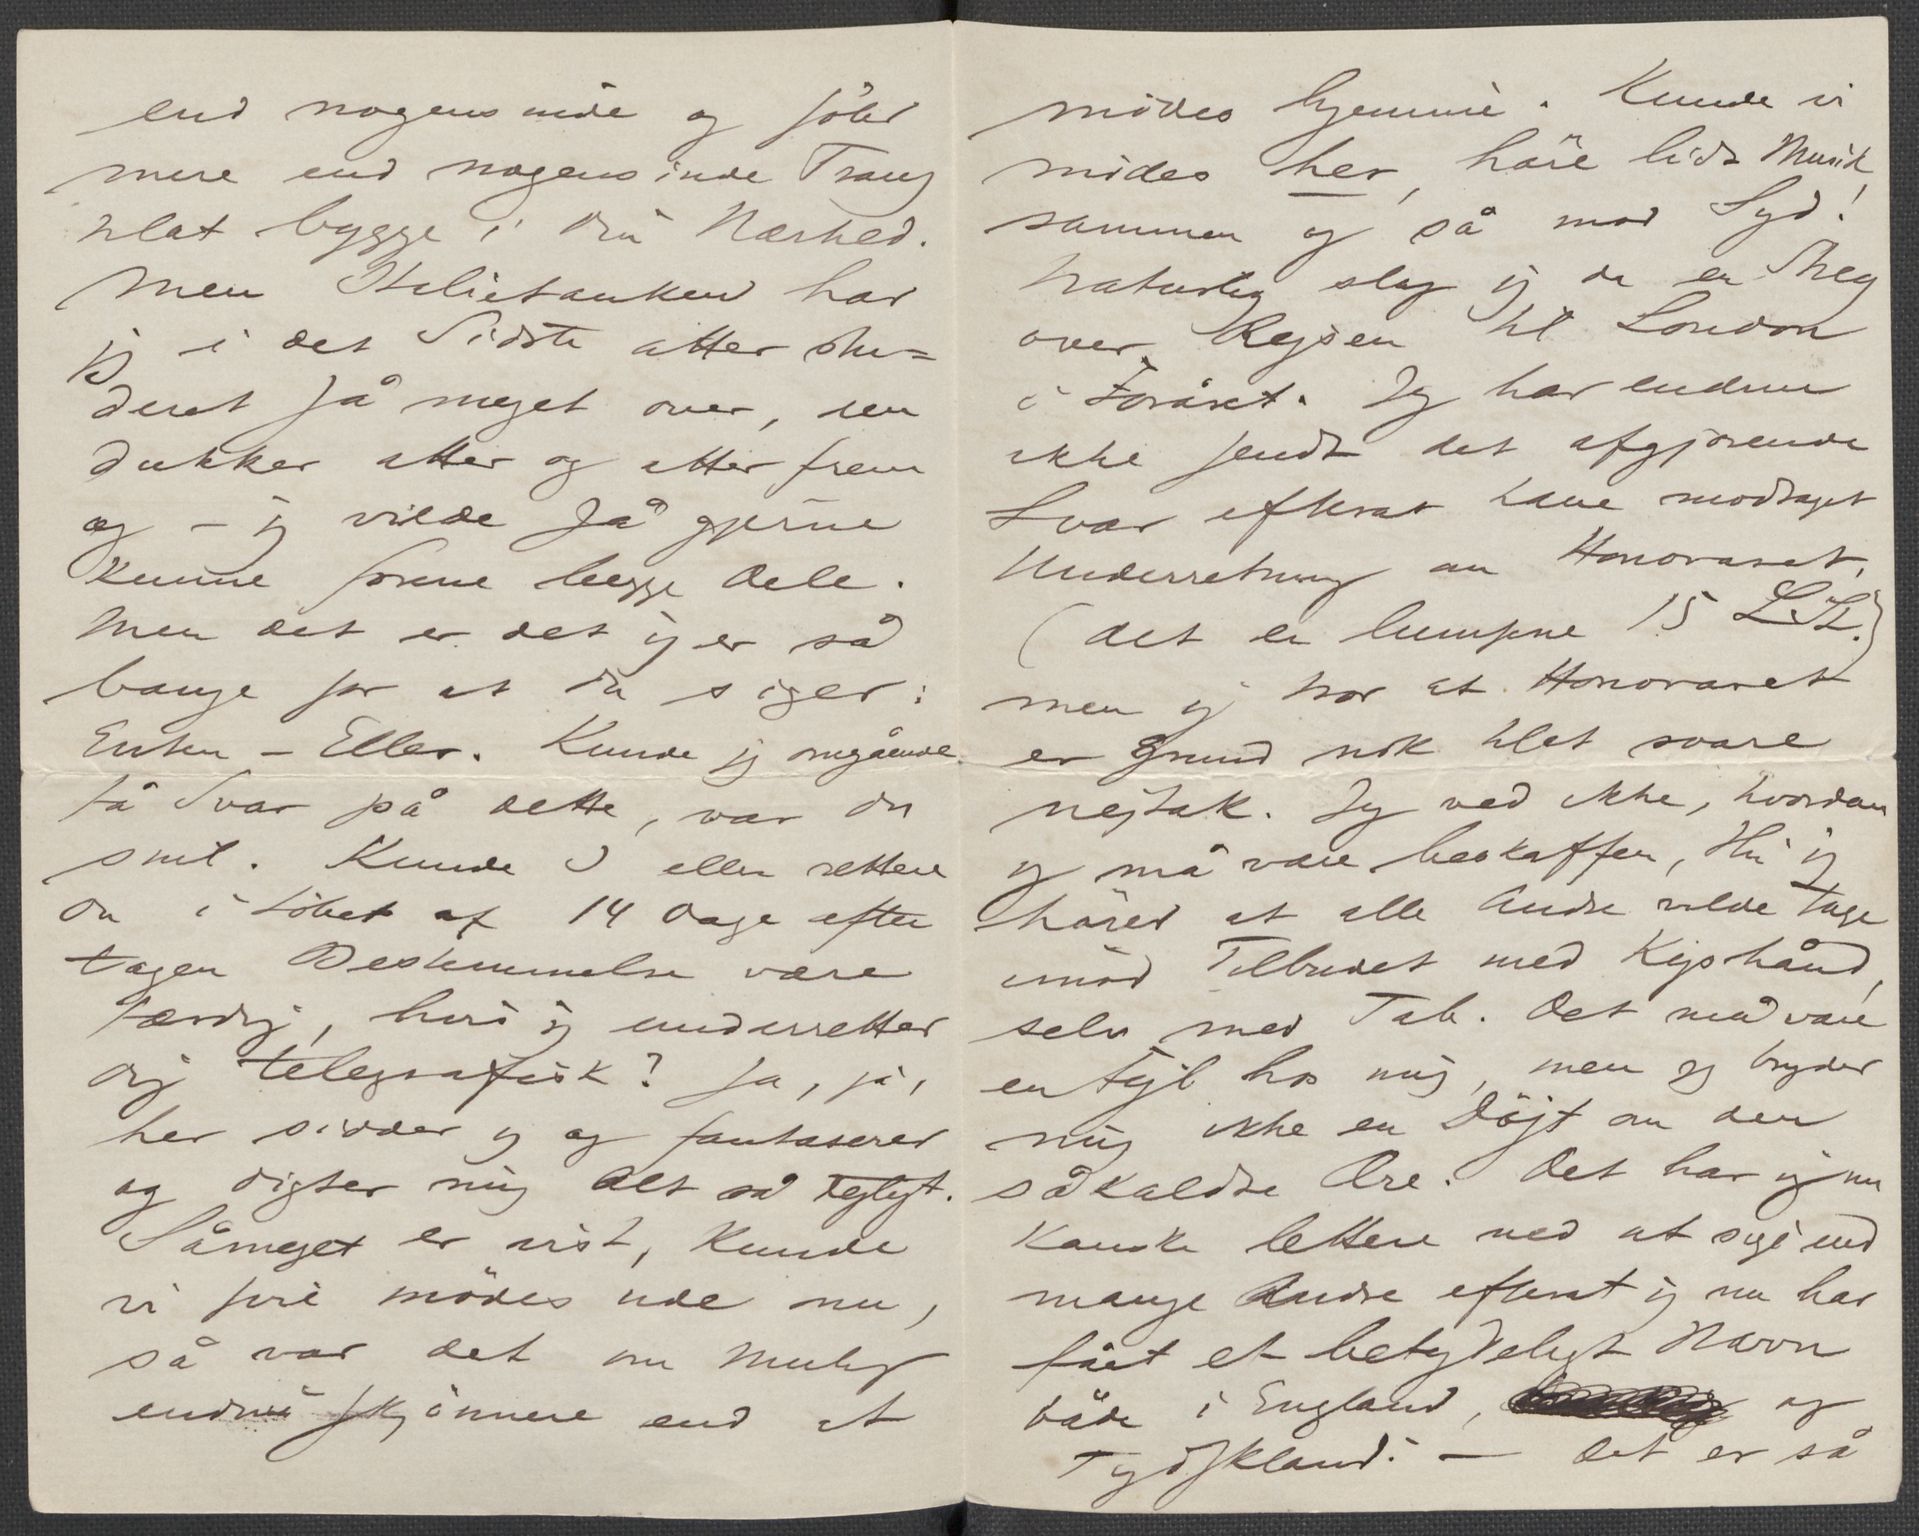 end nogensinde og föler
mere end nogensinde Trang
til at bygge i din Nærhed.
Men Italietanken har
jeg i det Sidste atter stu=
deret så meget over, den
dukker atter og atter frem
og – jeg vilde så gjerne
kunne forene begge Dele.
Men det er det jeg er så
bange for at du siger:
Enten – Eller. Kunde jeg omgående
få Svar på dette, var du
snil. Kunde I eller rettere
du i Löbet af 14 Dage efter
tagen Bestemmelse være
færdig, hvis jeg underretter
dig telegrafisk? Ja, ja,
her sidder jeg og fantaserer
og digter mig Alt så dejligt.
Såmeget er vist, kunde
vi fire mödes ude nu,
så var det om muligt
endnu skjönnere end at
mödes hjemme. Kunde vi
mödes her, höre lidt Musik
sammen og så mod Syd!
Naturligvis slog jeg da en Streg
over Rejsen til London
i Foråret. Jeg har endnu
ikke sendt det afgjörende
Svar efterat have modtaget
Underretning om Honoraret,
(det er lumpne 15 L.St.)
men jeg tror at Honoraret
er Grund nok til at svare
nejtak. Jeg ved ikke, hvordan
jeg må være beskaffen, thi jeg
hörer at alle Andre vilde tage
imod Tilbudet med Kyshånd,
selv med Tab. Det må være
en Fejl hos mig, men jeg bryder
mig ikke en Döjt om den
såkaldte Ære. Det har jeg nu
kanske lettere ved at sige end
mange Andre efterat jeg nu har
fået et betydeligt Navn
både i England, og
Tydskland. – Det er så